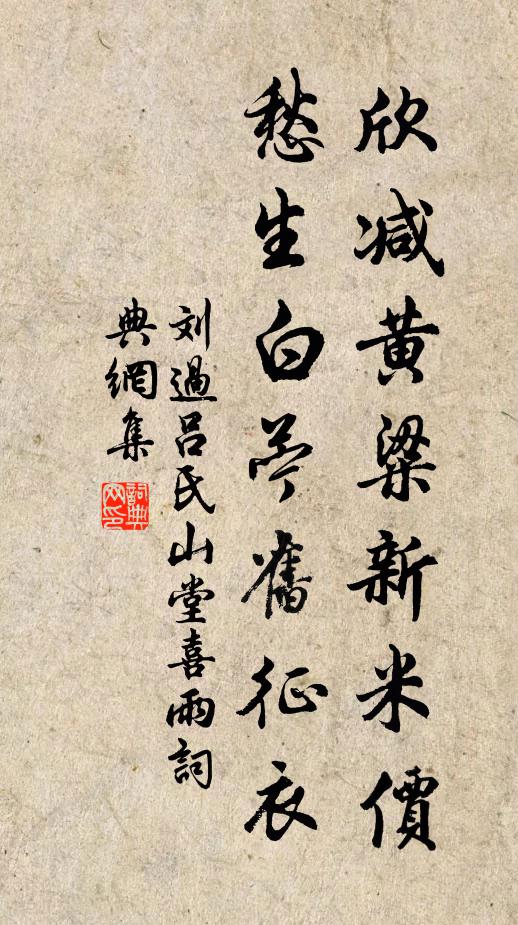 欣减黄粱新米價
愁生白苧舊征衣
刘過吕氏山堂喜雨詞
典網集
詞典网印